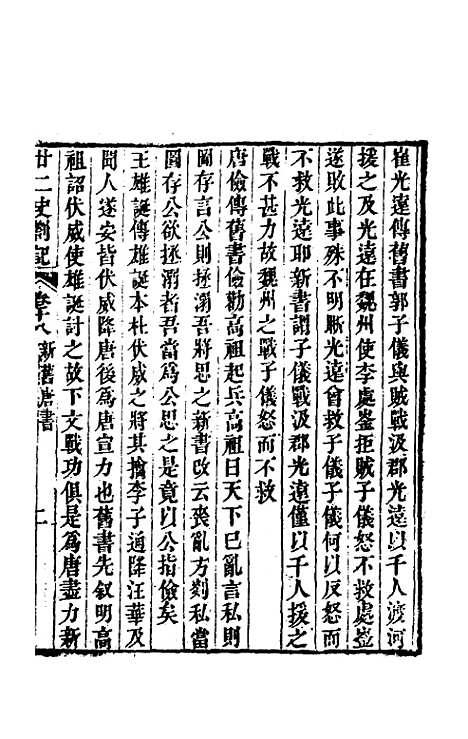 崔光遠傳舊書郭子儀與賊戰汲郡光遠以千人渡河
援之及光遠在魏州使李處崟拒賊子儀怒不救處崟
遂敗此事殊不明晰光遠曾救子儀子儀何以反怒而
不救光遠耶新書謂子儀戰汲郡光遠僅以千人援之
戰不甚力故魏州之戰子儀怒而不救
唐儉傳舊書儉勸高祖起兵高祖曰天下已亂言私則
圖存言公則拯溺吾將思之新書改云喪亂方剡私當
圖存公欲拯溺者吾當爲公思之是竟以公指儉矣
王雄誕傳雄誕本杜伏威之將其擒李子通降汪華及
聞人遂安皆伏威降唐後爲唐宣力也舊書先叙明高
祖詔伏威使雄誕討之故下文戰功俱是爲唐盡力新
廿二史劄記 卷十八 新舊唐書 二